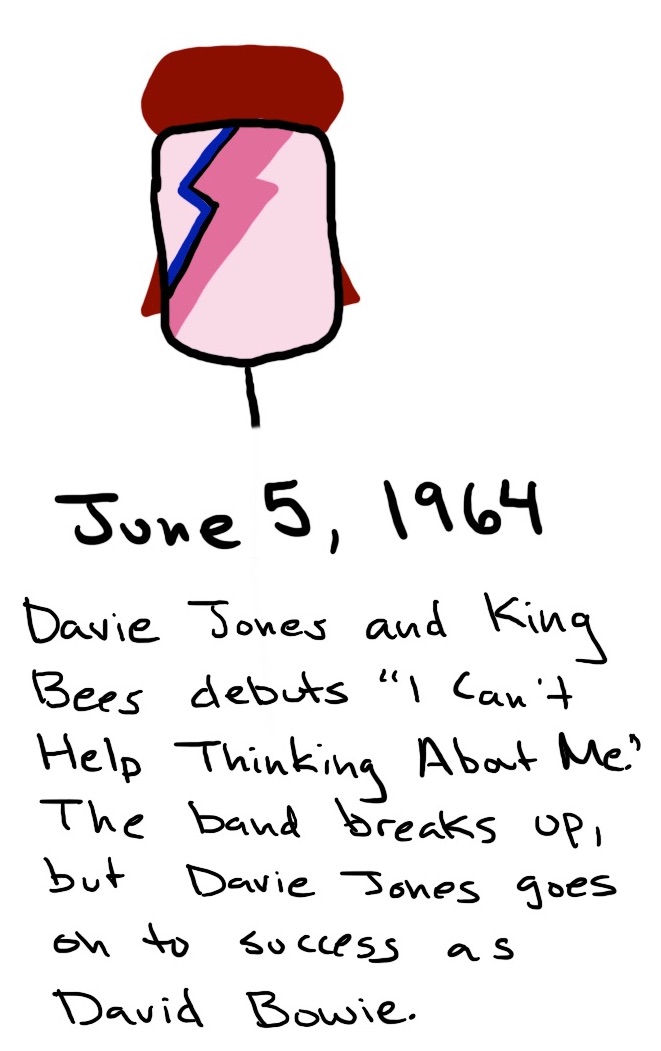 June 5, 1964
Davie Jones and King
Bees debuts "I Can't
Help Thinking About Me."
The band breaks up,
but Davie Jones goes
on to success as
David Bowie.